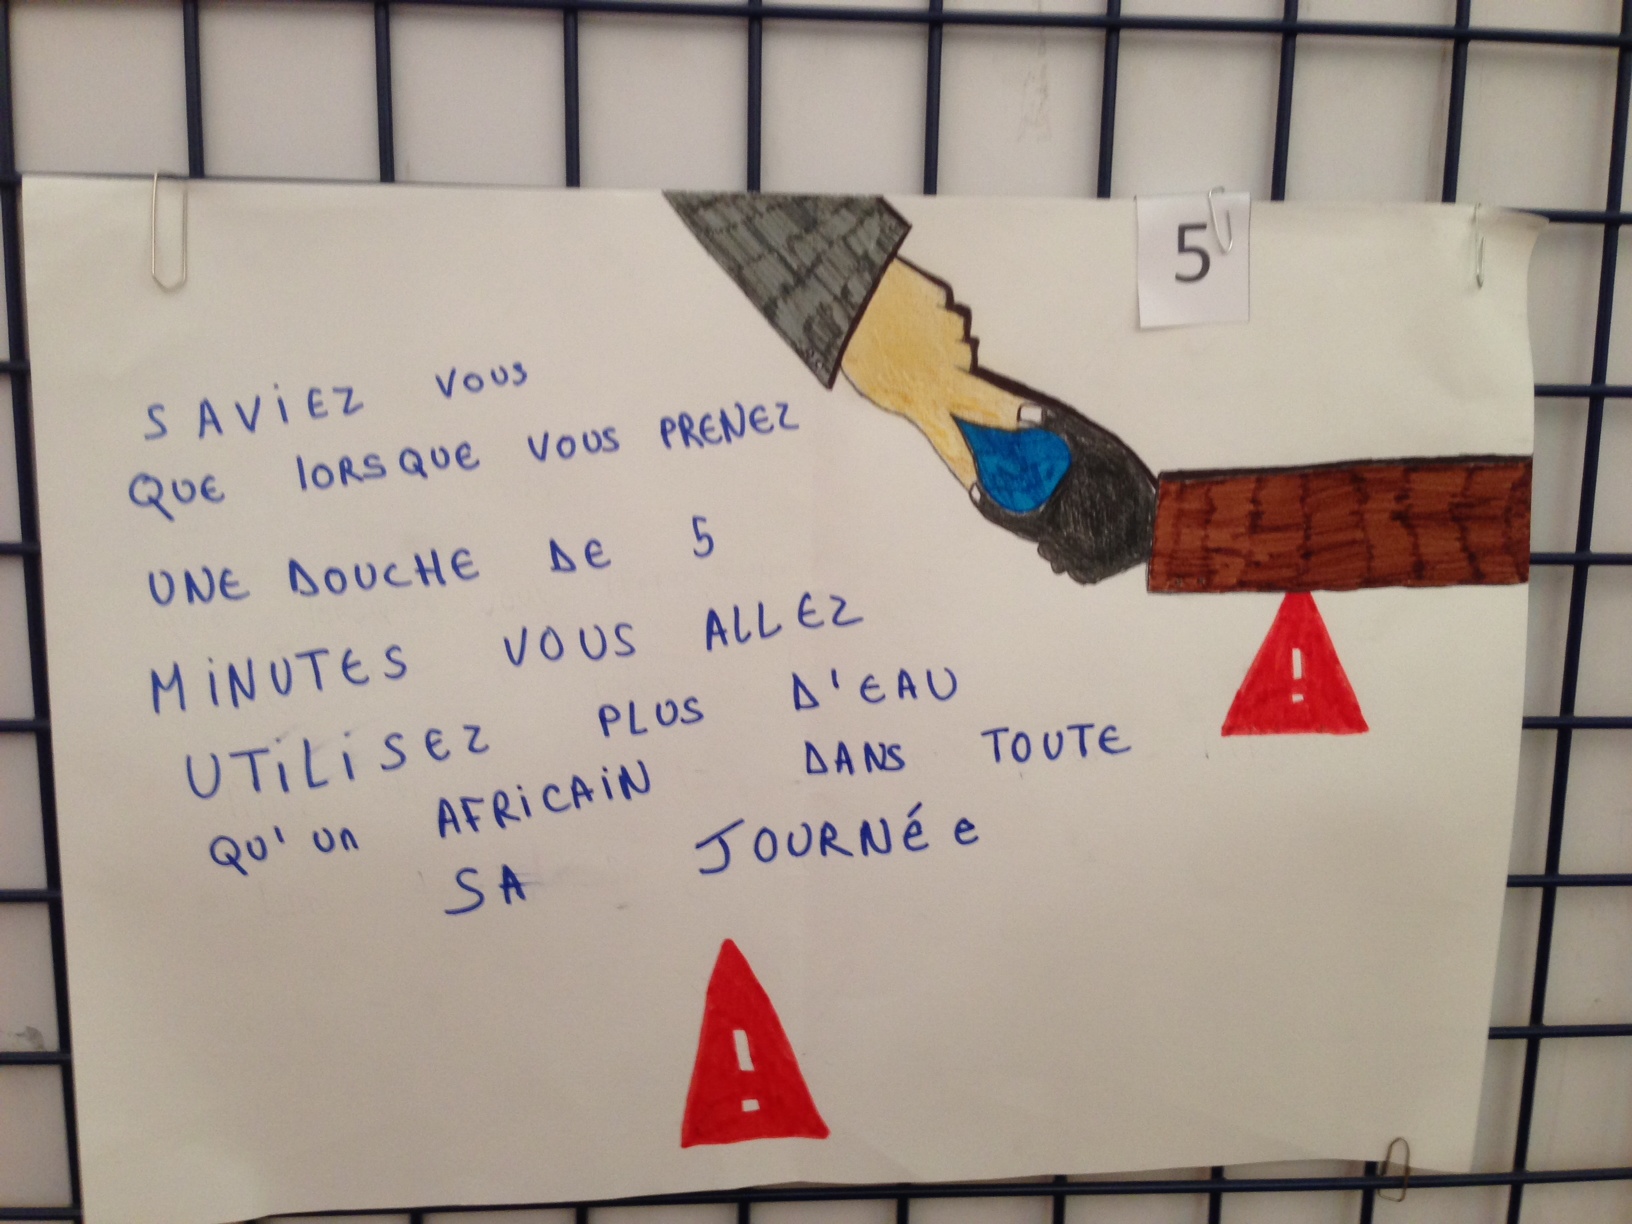 5
SAViEZ VOUS
QUE lORSQUE VOUS PRENEZ
UNE DOUCHE DE 5
MiNUTES VOUS ALLEZ
UTiLiSEZ PLUS D'EAU
QU'Un AFRiCAiN DANS TOUTE
SA JOURNÉe
!
!